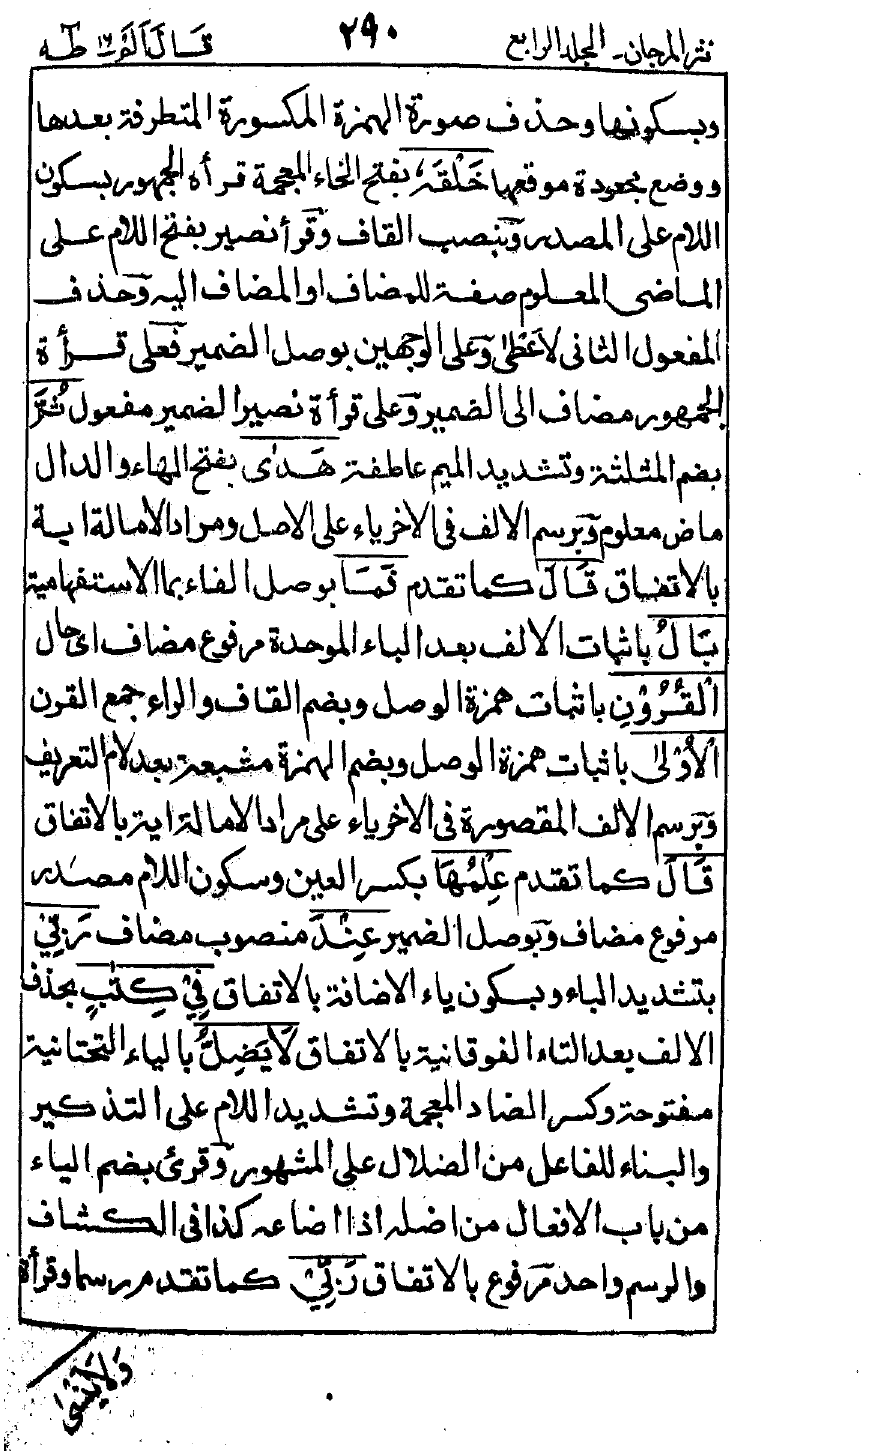 نثر المرجان۔ المجلد الرابع ٢٩٠ قَالَ اَلَمْ ١٦ طٰهٰ
وبسكونها وحذف صورة الهمزة المكسورة المتطرفة بعدها
ووضع مجعودة موقعها خَلْقَهٗ بفتح الخاء المعجمة قرأه الجمهور بسكون
اللام على المصدر وبنصب القاف وقرأ نصير بفتح اللام على
الماضى المعلوم صفة للمضاف او المضاف اليه وحذف
المفعول الثانى لاعطى وعلى الوجهين بوصل الضمير فعلى قرأة
الجمهور مضاف الى الضمير وعلى قرأة نصير الضمير مفعول ثُمَّ
بضم المثلثة وتشديد الميم عاطفة هَدٰى بفتح الهاء والدال
ماض معلوم وبرسم الالف فى الاخر ياء على الاصل ومراد الامالة اية
بالاتفاق قَالَ كما تقدم فَمَا بوصل الفاء بما الاستفهامية
بَالُ باثبات الالف بعد الباء الموحدة مرفوع مضاف اى حال
الْقُرُوْنِ باثبات همزة الوصل وبضم القاف والراء جمع القرن
الْاُوْلٰى باثبات همزة الوصل وبضم الهمزة مشبعة بعد لام التعريف
وبرسم الالف المقصورة فى الاخر ياء على مراد الامالة اية بالاتفاق
قَالَ كما تقدم عِلْمُهَا بكسر العين وسكون اللام مصدر
مرفوع مضاف وبوصل الضمير عِنْدَ منصوب مضاف رَبِّىْ
بتشديد الباء وبسكون ياء الاضافة بالاتفاق فِىْ كِتٰبٍ بحذف
الالف بعد التاء الفوقانية بالاتفاق لَا يَضِلُّ بالياء التحتانية
مفتوحة وكسر الضاد المعجمة وتشديد اللام على التذكير
والبناء للفاعل من الضلال على المشهور وقرئ بضم الياء
من باب الافعال من اضله اذا اضاعه كذا فى الكشاف
والرسم واحد مرفوع بالاتفاق رَبِّىْ كما تقدم رسما وقرأة
وَلَا يَنْسٰى